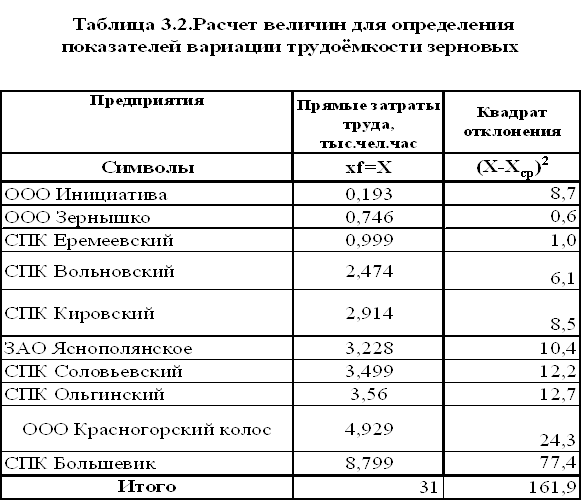 Таблица 3.2.Расчет величин для определения
показателей вариации трудоёмкости зерновых
Предприятия Прямые затраты труда, тыс.чел.час Квадрат отклонения
Символы xf=X (X-Xср)2
ООО Инициатива 0,193 8,7
ООО Зернышко 0,746 0,6
СПК Еремеевский 0,999 1,0
СПК Вольновский 2,474 6,1
СПК Кировский 2,914 8,5
ЗАО Яснополянское 3,228 10,4
СПК Соловьевский 3,499 12,2
СПК Ольгинский 3,56 12,7
ООО Красногорский колос 4,929 24,3
СПК Большевик 8,799 77,4
Итого 31 161,9